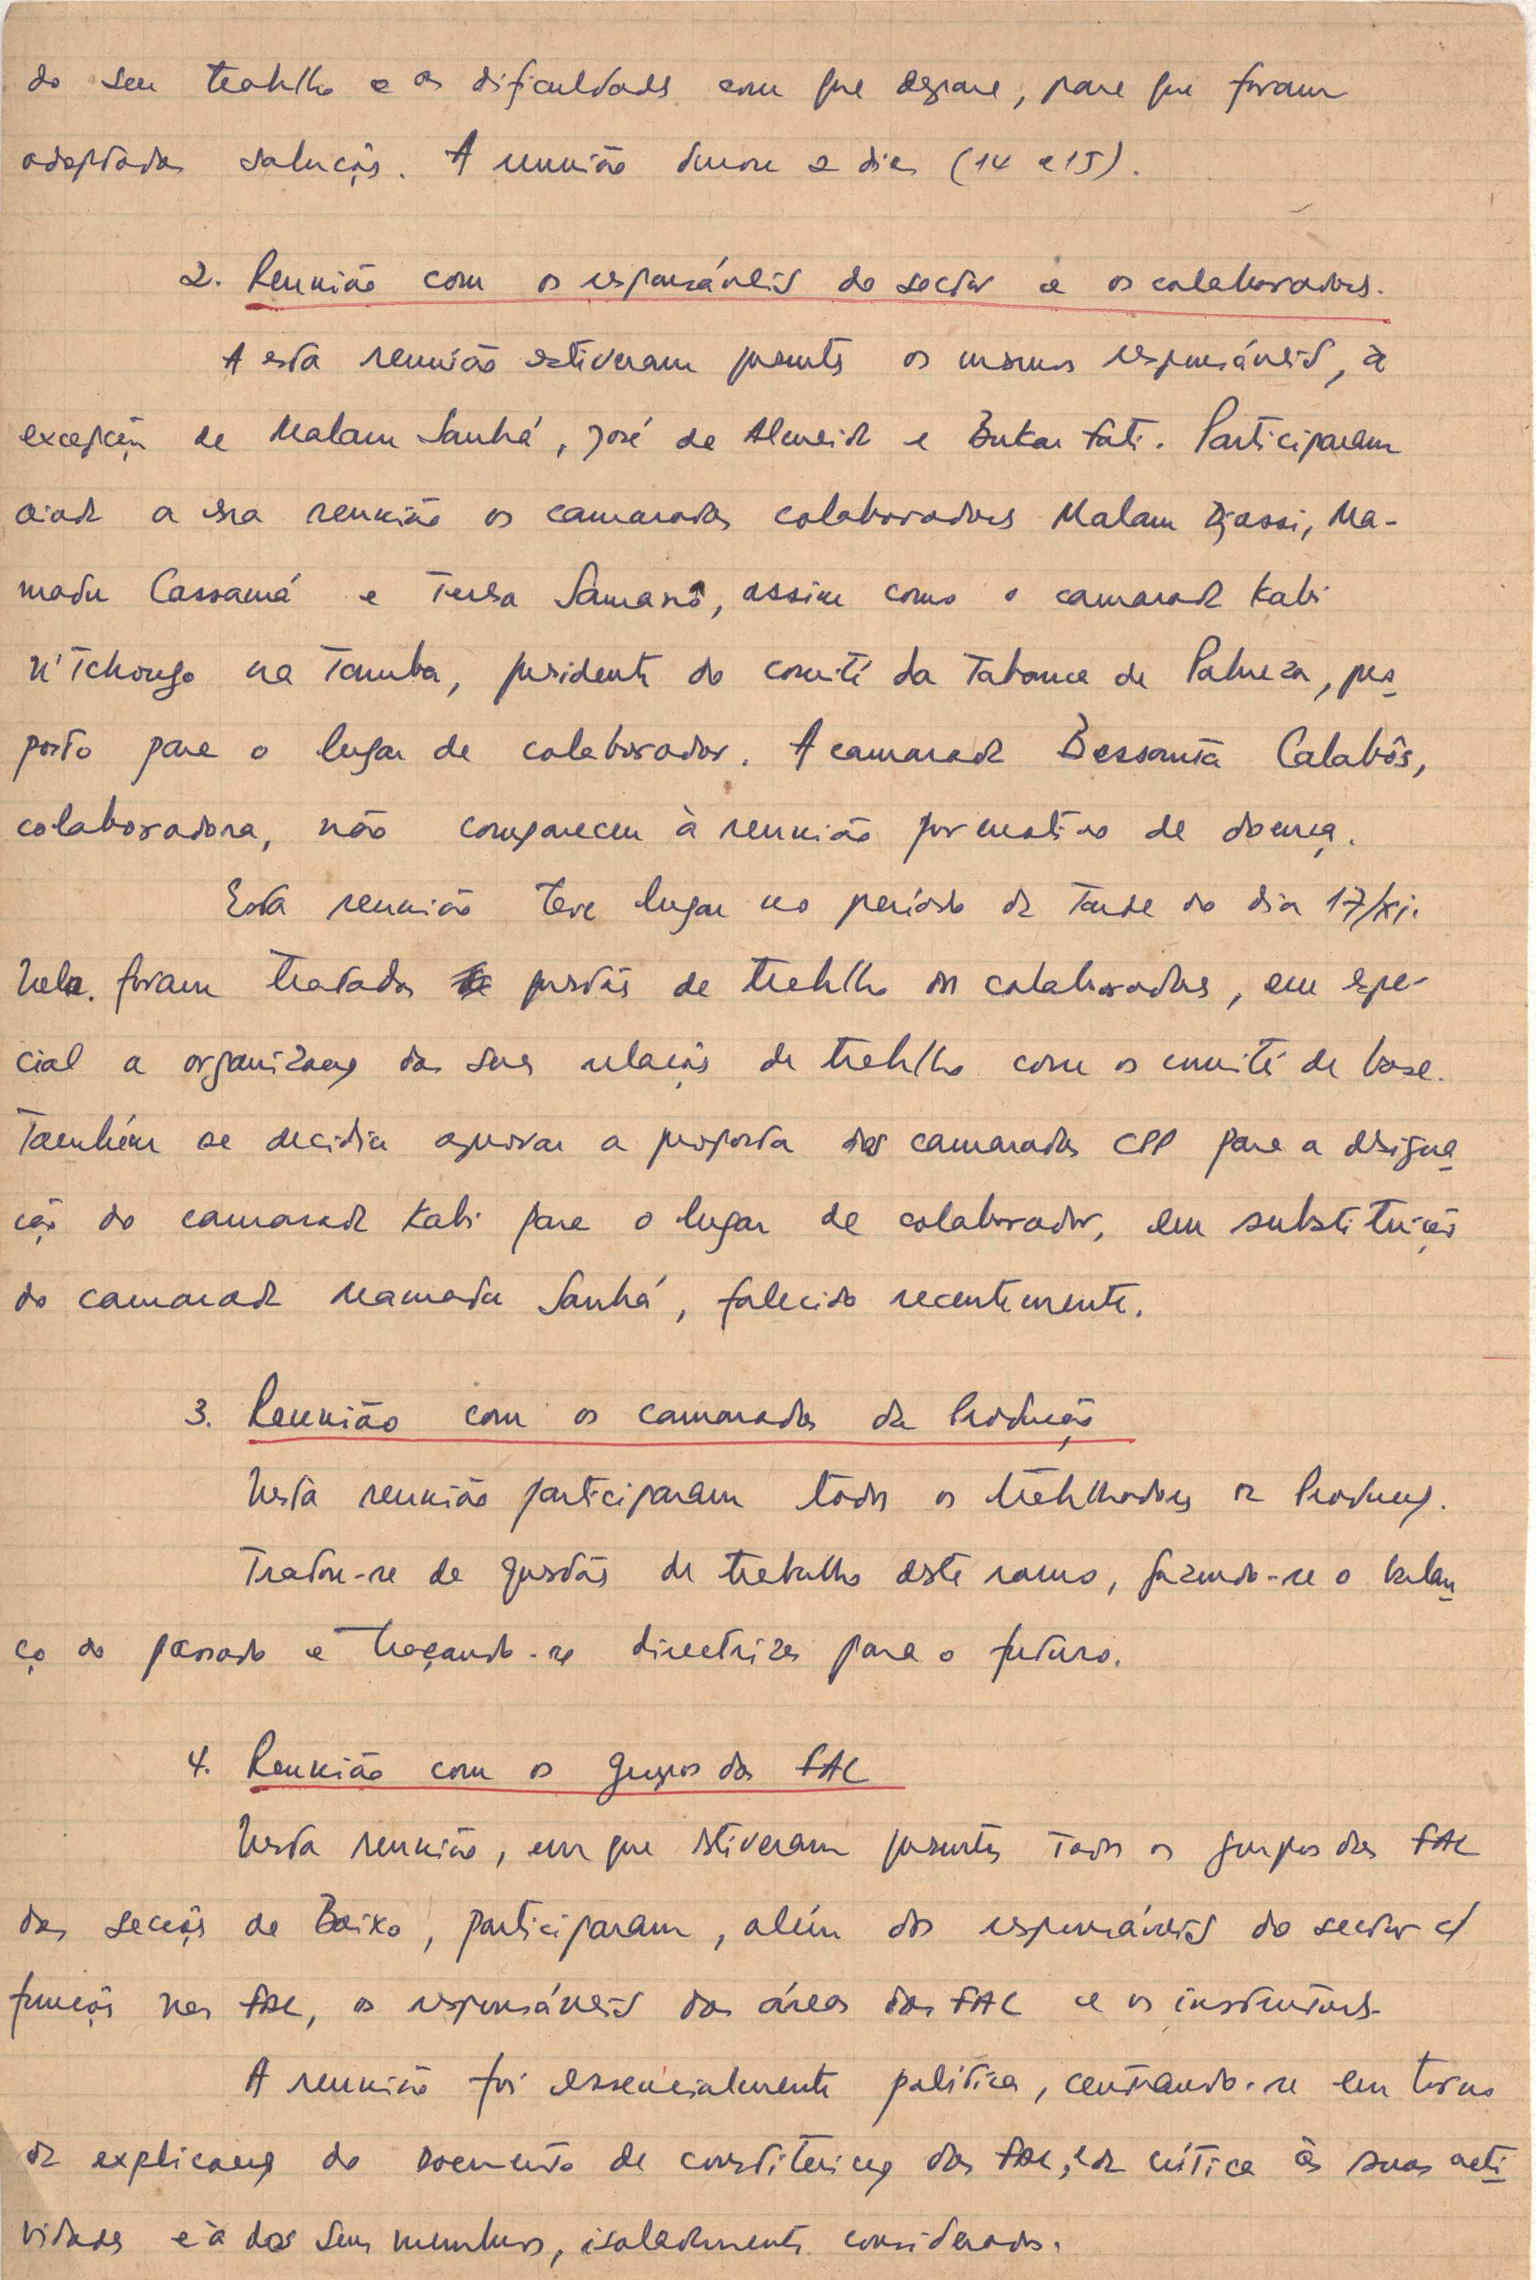 do seu trabalho e as dificuldades com que depara, para que foram
adoptadas soluções. A reunião durou 2 dias (14 e 15).
2. Reunião com os responsáveis do sector e os colaboradores.
A esta reunião estiveram presentes os mesmos responsáveis, à
excepção de Malam Sanhá, José de Almeida e Bukar Fati. Participaram
ainda a essa reunião os camaradas colaboradores Malam Djassi, Ma-
madu Cassamá e Teresa Samanô, assim como o camarada Kabi
N'Tchongo na Tamba, presidente do comité da Tabanca de Palmeza, pro
posto para o lugar de colaborador. A camarada Bessanta Calabôs,
colaboradora, não compareceu à reunião por motivo de doença.
Esta reunião teve lugar no período da tarde do dia 17/XI.
Nela foram tratadas questões de trabalho dos colaboradores, em espe-
cial a organização das suas relações de trabalho com os comités de base.
Também se decidiu aprovar a proposta dos camaradas CPP para a designa
ção do camarada Kabi para o lugar de colaborador, em substituição
do camarada Mamadu Sanhá, falecido recentemente.
3. Reunião com os camaradas da Produção
Nesta reunião participaram todos os trabalhadores da Produção.
Tratou-se de questões de trabalho deste ramo, fazendo-se o balan
ço do passado e traçando-se directrizes para o futuro.
4. Reunião com os grupos das FAL
Nesta reunião, em que estiveram presentes todos os grupos das FAL
das secções de Baixo, participaram, além dos responsáveis do sector c/
funções nas FAL, os responsáveis das áreas das FAL e os instrutores.
A reunião foi essencialmente política, centrando-se em torno
da explicação do documento de constituição das FAL, e da crítica às suas acti
vidades e à dos seus membros, isoladamente considerados.